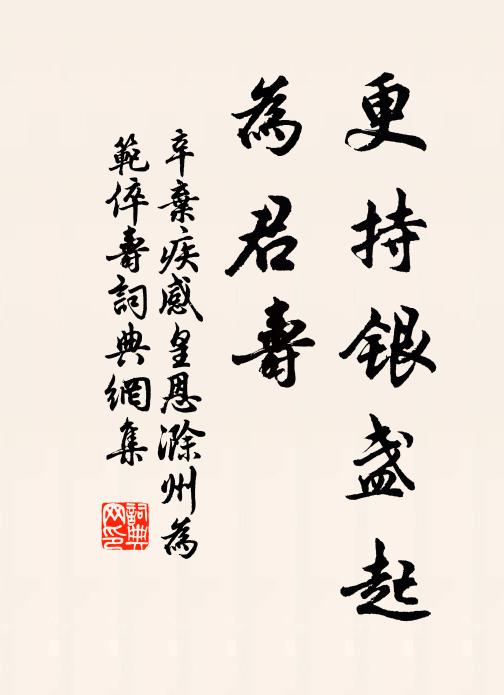 更持銀盞起
為君壽
辛棄疾感皇恩滁州為
範倅壽詞典網集
詞典
网印